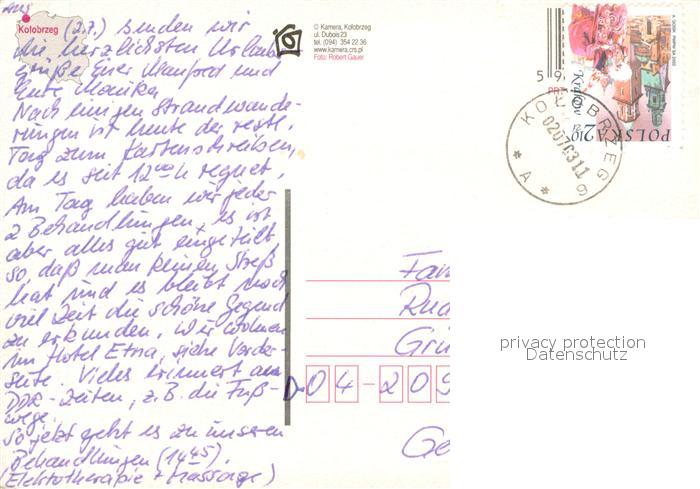 aus
Kołobrzeg
(2.7.) senden wir
die herzlichsten Urlaubs
Grüße Euer Manfred und
Eure Monika
Nach einigen Strandwande-
rungen ist heute der
Tag zum Kartenschreiben,
da es seit 12⁰⁰ h regnet.
Am Tag haben wir jeder
2 Behandlungen, es ist
aber alles gut eingeteilt
so, daß man keinen Streß
hat und es bleibt noch
viel Zeit die schöne Gegend
zu erkunden. Wir wohnen
im Hotel Etna, siehe Vorder-
seite. Vieles erinnert an
DDR-Zeiten, z.B. die Fuß-
wege.
So jetzt geht es zu unseren
Behandlungen (14⁴⁵).
(Elektrotherapie + Massage)
© Kamera, Kołobrzeg
ul. Dubois 23
tel. (094) 354 22 36
www.kamera.crs.pl
Foto: Robert Gauer
5 9
Kraków
POLSKA 2,10
KOŁOBRZEG
020703 11
* A *
Fam
Rud
Grü
D-04-209
Ge
privacy protection
Datenschutz